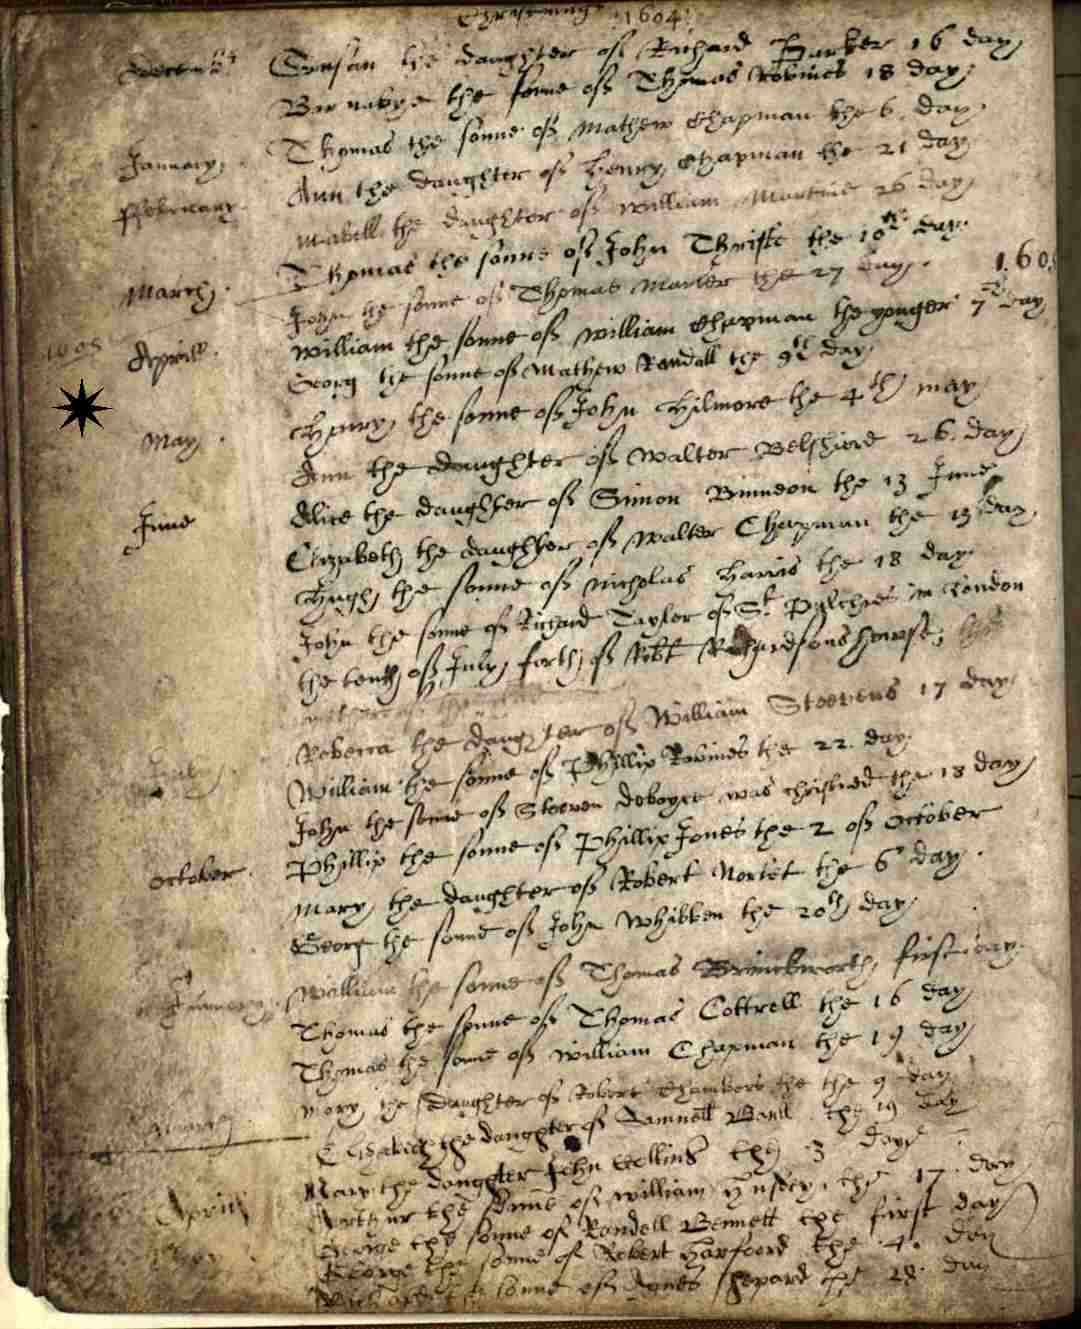 Christnings 1604
December Susan the daughter of Richard Parker 16 day
Barnabye the sonne of Thomas Robines 18 day
January Thomas the sonne of Mathew Chapman the 6 day
ffebruary Ann the daughter of Henry Chapman the 21 day
Maball the daughter of William Martine 26 day
March Thomas the sonne of John the 10th day
John the sonne of Thomas the 27 day 1605
1605 Aprill William the sonne of William Chapman the yonger 7 day
Georg the sonne of Mathew Randall the 9th day
May Henry the sonne of John Hilmore the 4th may
Ann the daughter of Walter 26 day
June Alice the daughter of Simon Binneon the 13 June
Elizabeth the daughter of Walter Chapman the 13 day
Hugh the sonne of Nicholas Harris the 18 day
John the sonne of Richard Taylor of St Pulchres in London
the tenth of July forth of Robt Richardsons howse
July Rebecca the daughter of William Steevens 17 day
William the sonne of Phillip Robines the 22 day
John the sonne of Steeven was christned the 18 day
October Phillip the sonne of Phillip Jones the 2 of October
Mary the daughter of Robert the 6 day
Georg the sonne of John Whibben the 20th day
January William the sonne of Thomas Brinckworth first day
Thomas the sonne of Thomas Cottrell the 16 day
Thomas the sonne of William Chapman the 19 day
Mary the daughter of Robert Chambers the the 9 day
March Elizabeth the daughter of Samuell the 19 day
Mary the daughter John Collins the 3 daye
Aprill Arthur the sonne of William the 17 day
George the sonne of Randell Bennett the first day
George the sonne of Robert Harfoord the 4 day
sonne of Shepard the 28 day